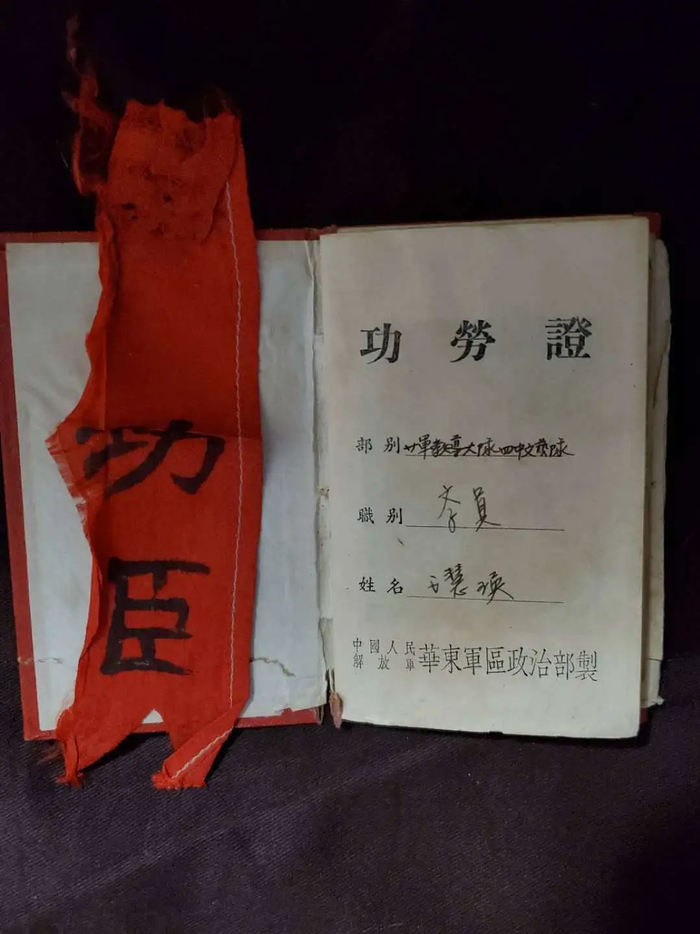 功
臣
功勞證
部别 廿軍教導大隊四中文藝隊
職别 学員
姓名 方慧瑛
中國人民解放軍 華東軍區政治部製